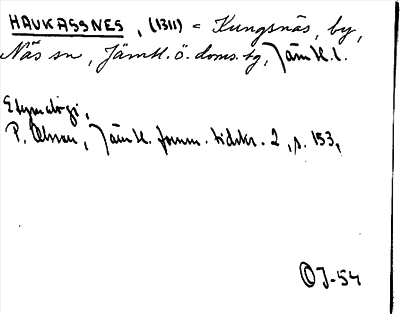 HAUKASSNES, (1311) = Kungsnäs, by,
Näs sn, Jämtl. ö. doms. tg, Jämtl. l.
Etymologi,
P. Olsson, Jämtl. fornm. tidskr. 2, s. 153,
OJ-54